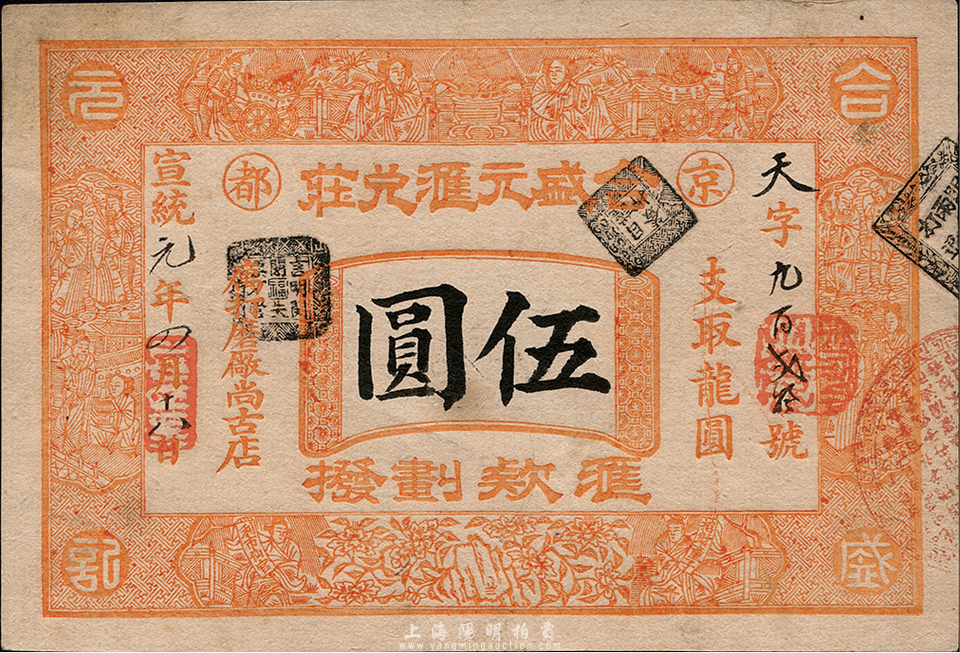 合盛元記
京都
合盛元滙兌莊
天字九百 號
支取龍圓
伍圓
滙欵劃撥
打磨廠尚古店
宣統元年四月十八日
上海陽明拍賣
www.yangmingauction.com